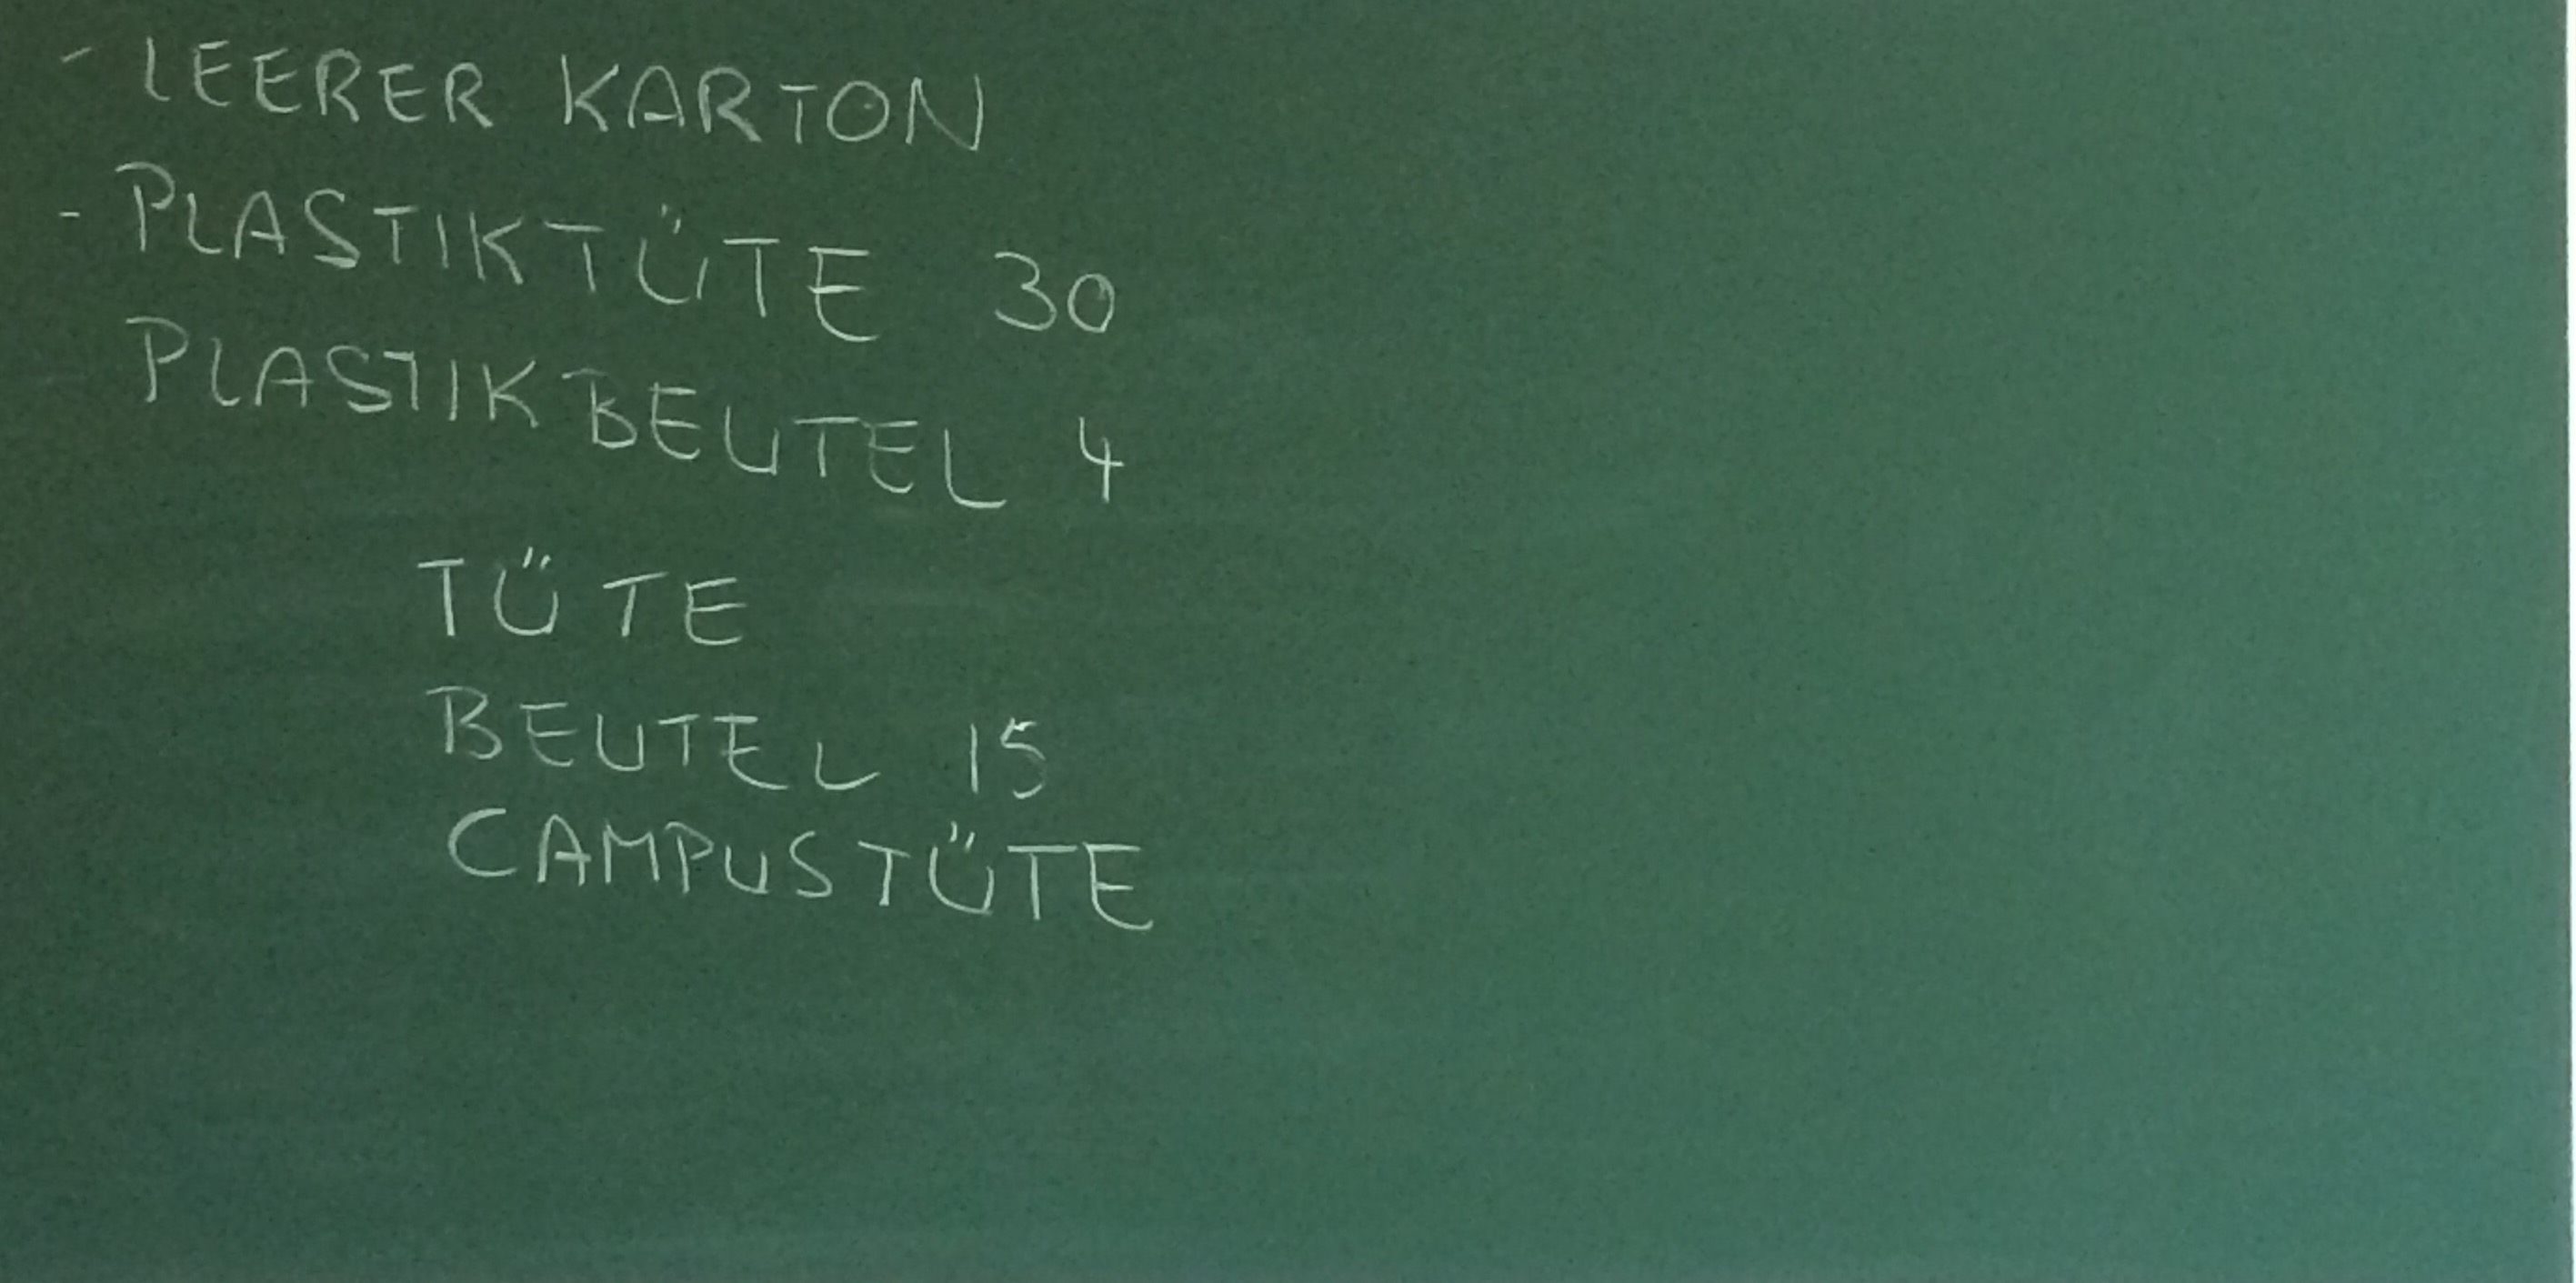 - LEERER KARTON
- PLASTIKTÜTE 30
PLASTIKBEUTEL 4
TÜTE
BEUTEL 15
CAMPUSTÜTE